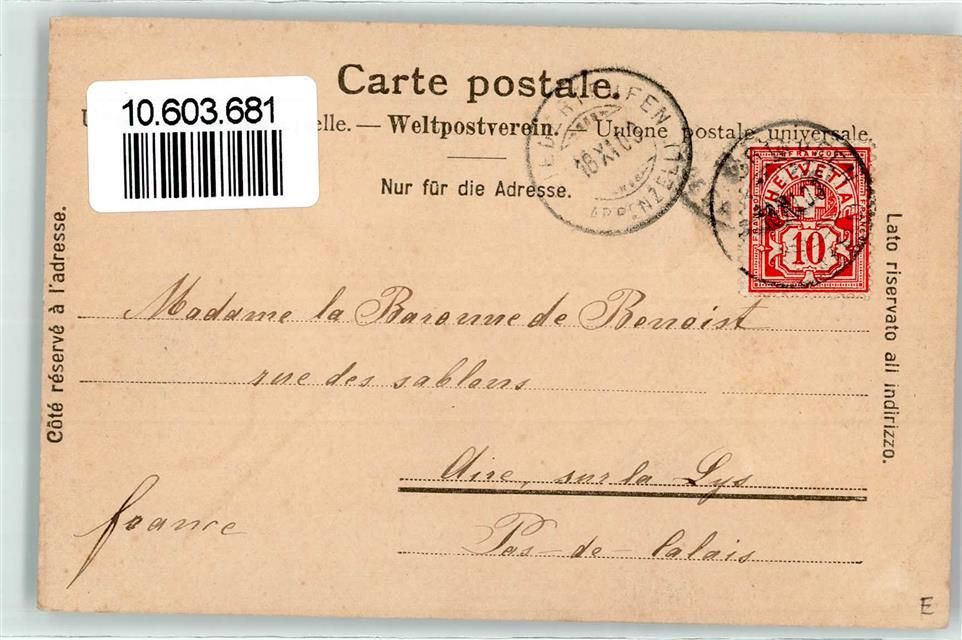 10.603.681
Carte postale.
elle. — Weltpostverein. Unione postale universale.
Nur für die Adresse.
NIEDERTEUFEN
16 XI 00
(APPENZELL)
HELVETIA
10
Côté réservé à l'adresse.
Lato riservato all indirizzo.
Madame la Baronne de Benoist
rue des sablons
Aire, sur la Lys
france
Pas-de-Calais
E